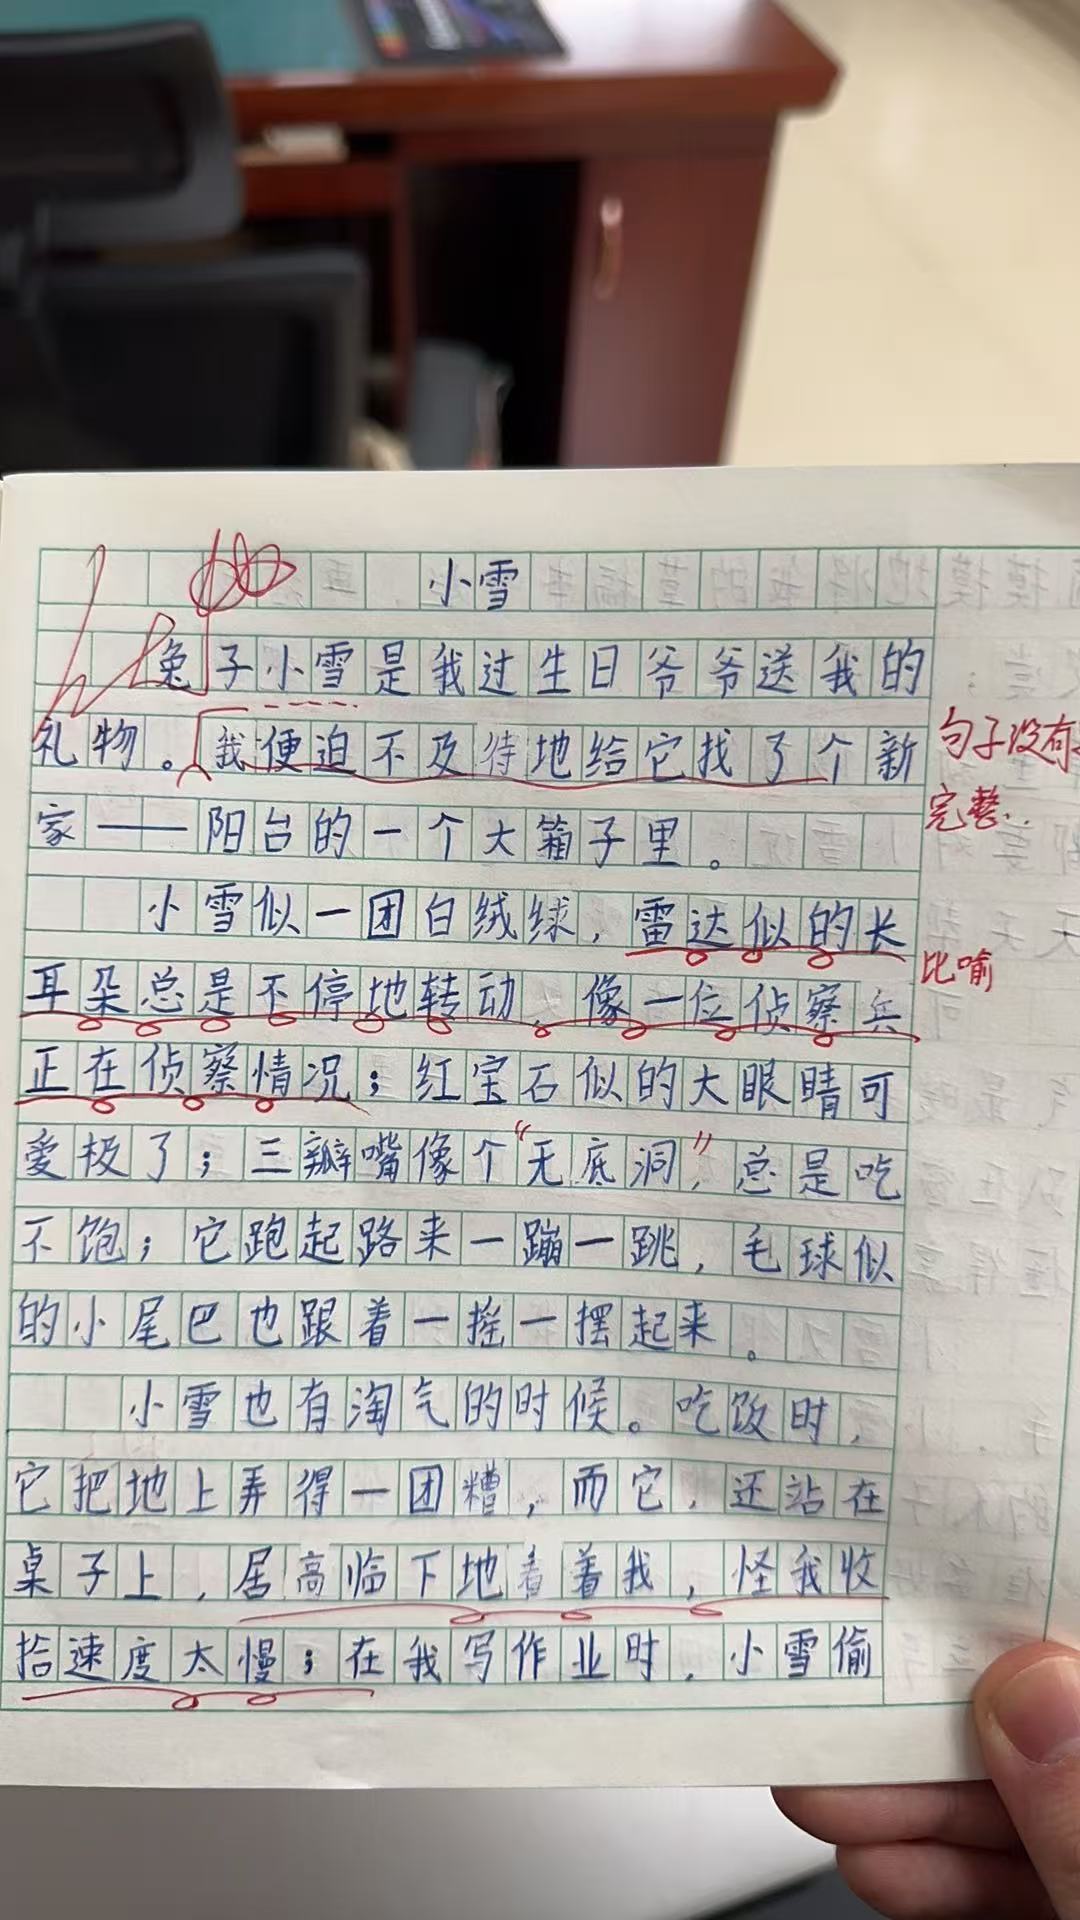 小雪
兔子小雪是我过生日爷爷送我的
礼物。我便迫不及待地给它找了个新
句子没有
完整..
家——阳台的一个大箱子里。
小雪似一团白绒球，雷达似的长
比喻
耳朵总是不停地转动，像一位侦察兵
正在侦察情况；红宝石似的大眼睛可
爱极了；三瓣嘴像个“无底洞”，总是吃
不饱；它跑起路来一蹦一跳，毛球似
的小尾巴也跟着一摇一摆起来。
小雪也有淘气的时候。吃饭时，
它把地上弄得一团糟，而它，还站在
桌子上，居高临下地看着我，怪我收
拾速度太慢；在我写作业时，小雪偷